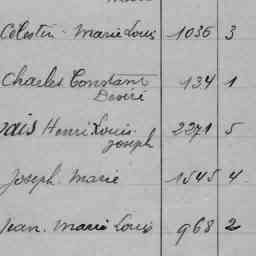 Célestin. Marie Louis 1036 3
Charles Constant 134 1
Désiré
Henri Louis 2271 5
Joseph
Joseph. Marie 1545 4
Jean. Marie Louis 968 2